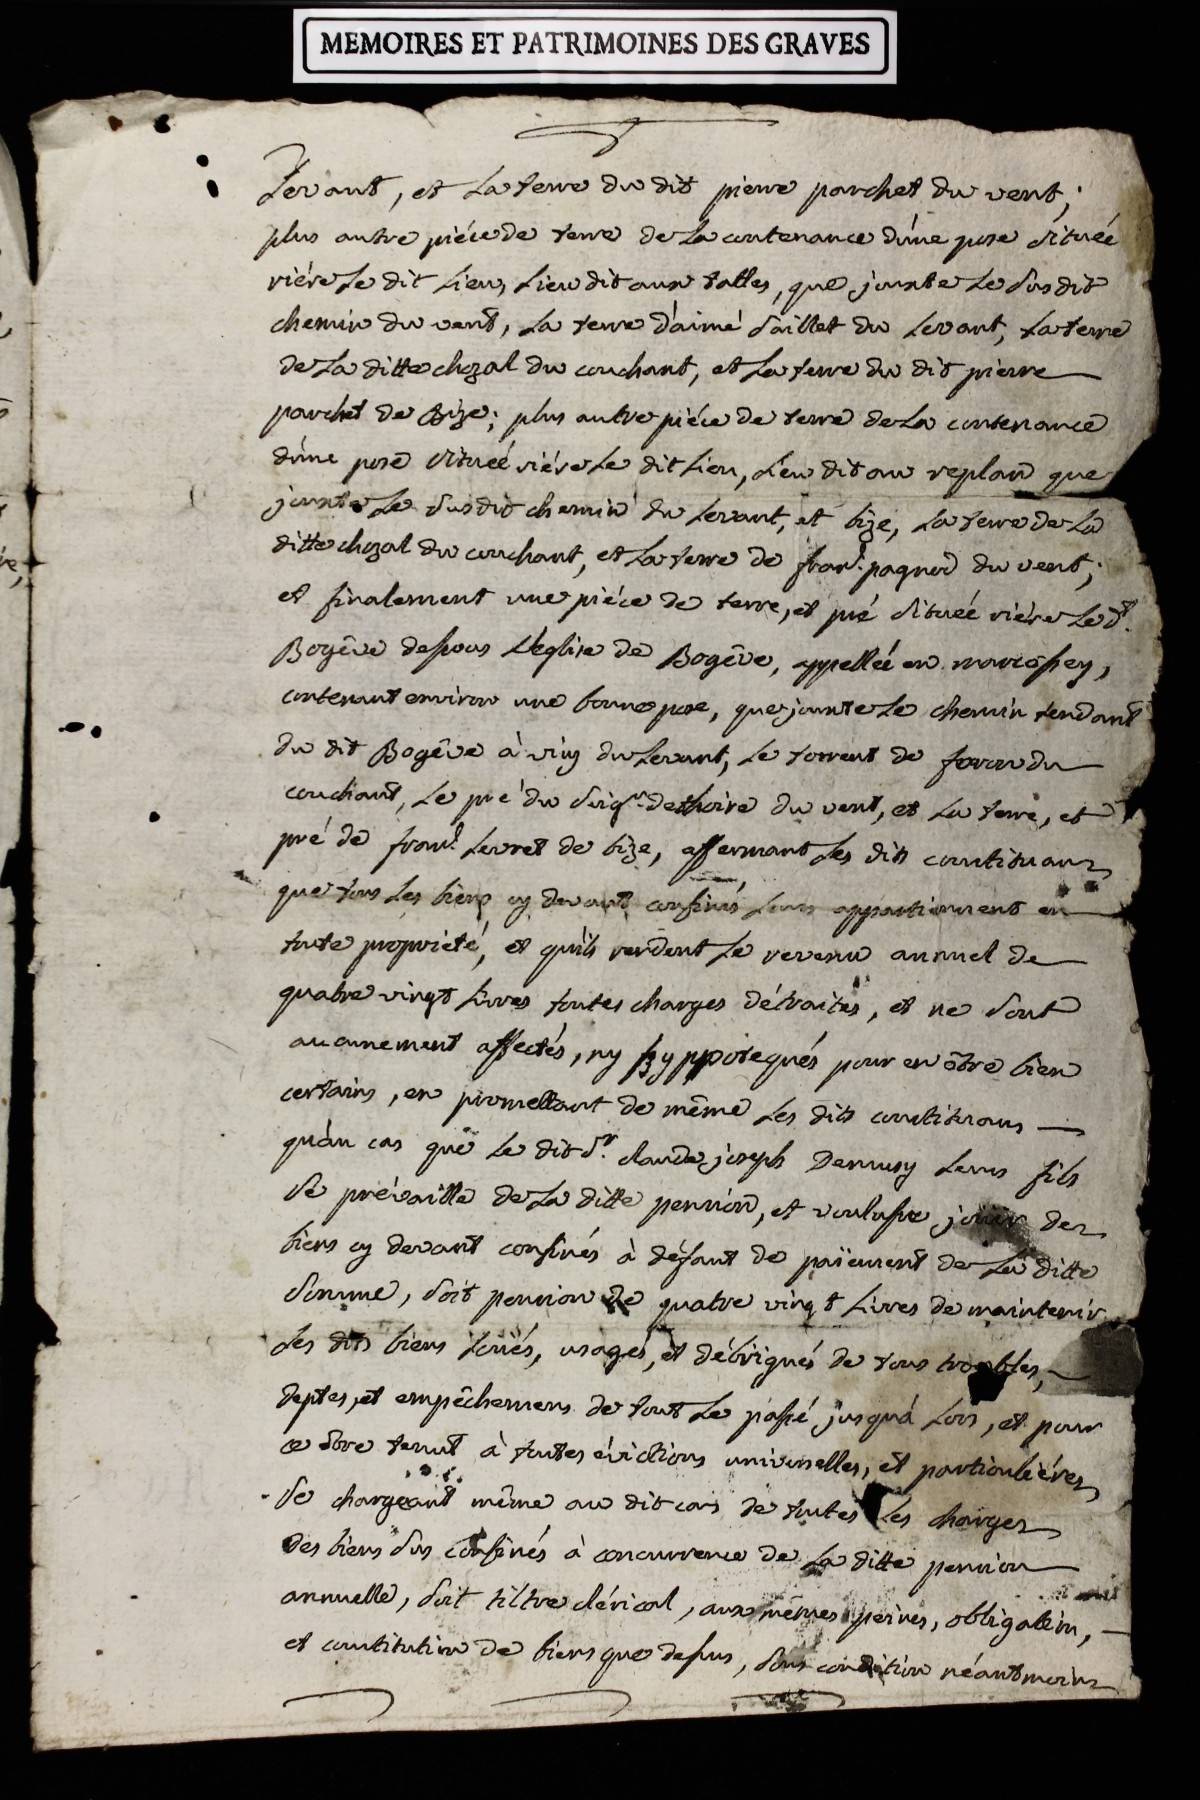 MEMOIRES ET PATRIMOINES DES GRAVES
Levant, et La terre du dit pierre parchet du vent;
plus autre piéce de terre de La contenance d'une pose située
riére Le dit Lieu, Lieu dit aux tattes, que jouxte Le Susdit
chemin du vent, La terre d'aimé Saillet du Levant, La terre
de La ditte chozal du couchant, et La terre du dit pierre
parchet de Bize; plus autre piéce de terre de La contenance
d'une pose située riére Le dit Lieu, Lieu dit au replan que
jouxte Le Susdit chemin du Levant, et bize, La terre de La
ditte chozal du couchant, et La terre de fran.s pagnod du vent;
et finalement une piéce de terre, et pré située riére Le d.t
Bogêve dessous L'église de Bogêve, appellée en
contenant environ une bonne pose, que jouxte Le chemin tendant
du dit Bogêve à viu du Levant, Le torrent de foron du
couchant, Le pré du Seig.r dethoire du vent, et La terre, et
pré de fran.s Levret de bize, affermant Les dits constituans
que tous Les biens cy devant confinés Leurs appartiennent en
toute proprieté, et qu'ils rendent Le revenu annuel de
quatre vingt Livres toutes charges détraites, et ne Sont
aucunement affectés, ny hyppotequés pour en être bien
certains, en promettant de même Les dits constituans
qu'au cas que Le dit S.r claude joseph Dernusy Leurs fils
Se prévaille de La ditte pension, et voulusse joüir des
biens cy devant confinés à défaut de païement de La ditte
Somme, Soit pension de quatre vingt Livres de maintenir
Les dits biens francs, et débrigués de tous troubles,
deptes, et empêchemens de tout Le passé jusqu'à Lors, et pour
ce être tenut à toutes évictions universelles, et particuliéres
Se chargeant même au dit cas de toutes Les charges
des biens Sus confinés à concurrence de La ditte pension
annuelle, Soit tiltre clérical, aux mêmes peines, obligation,
et constitution de biens que dessus, Sous condition néantmoins